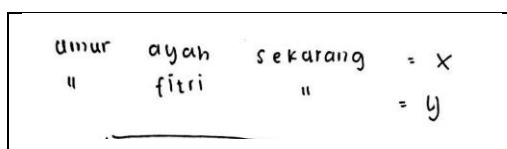 umur ayah sekarang = x
" fitri " = y